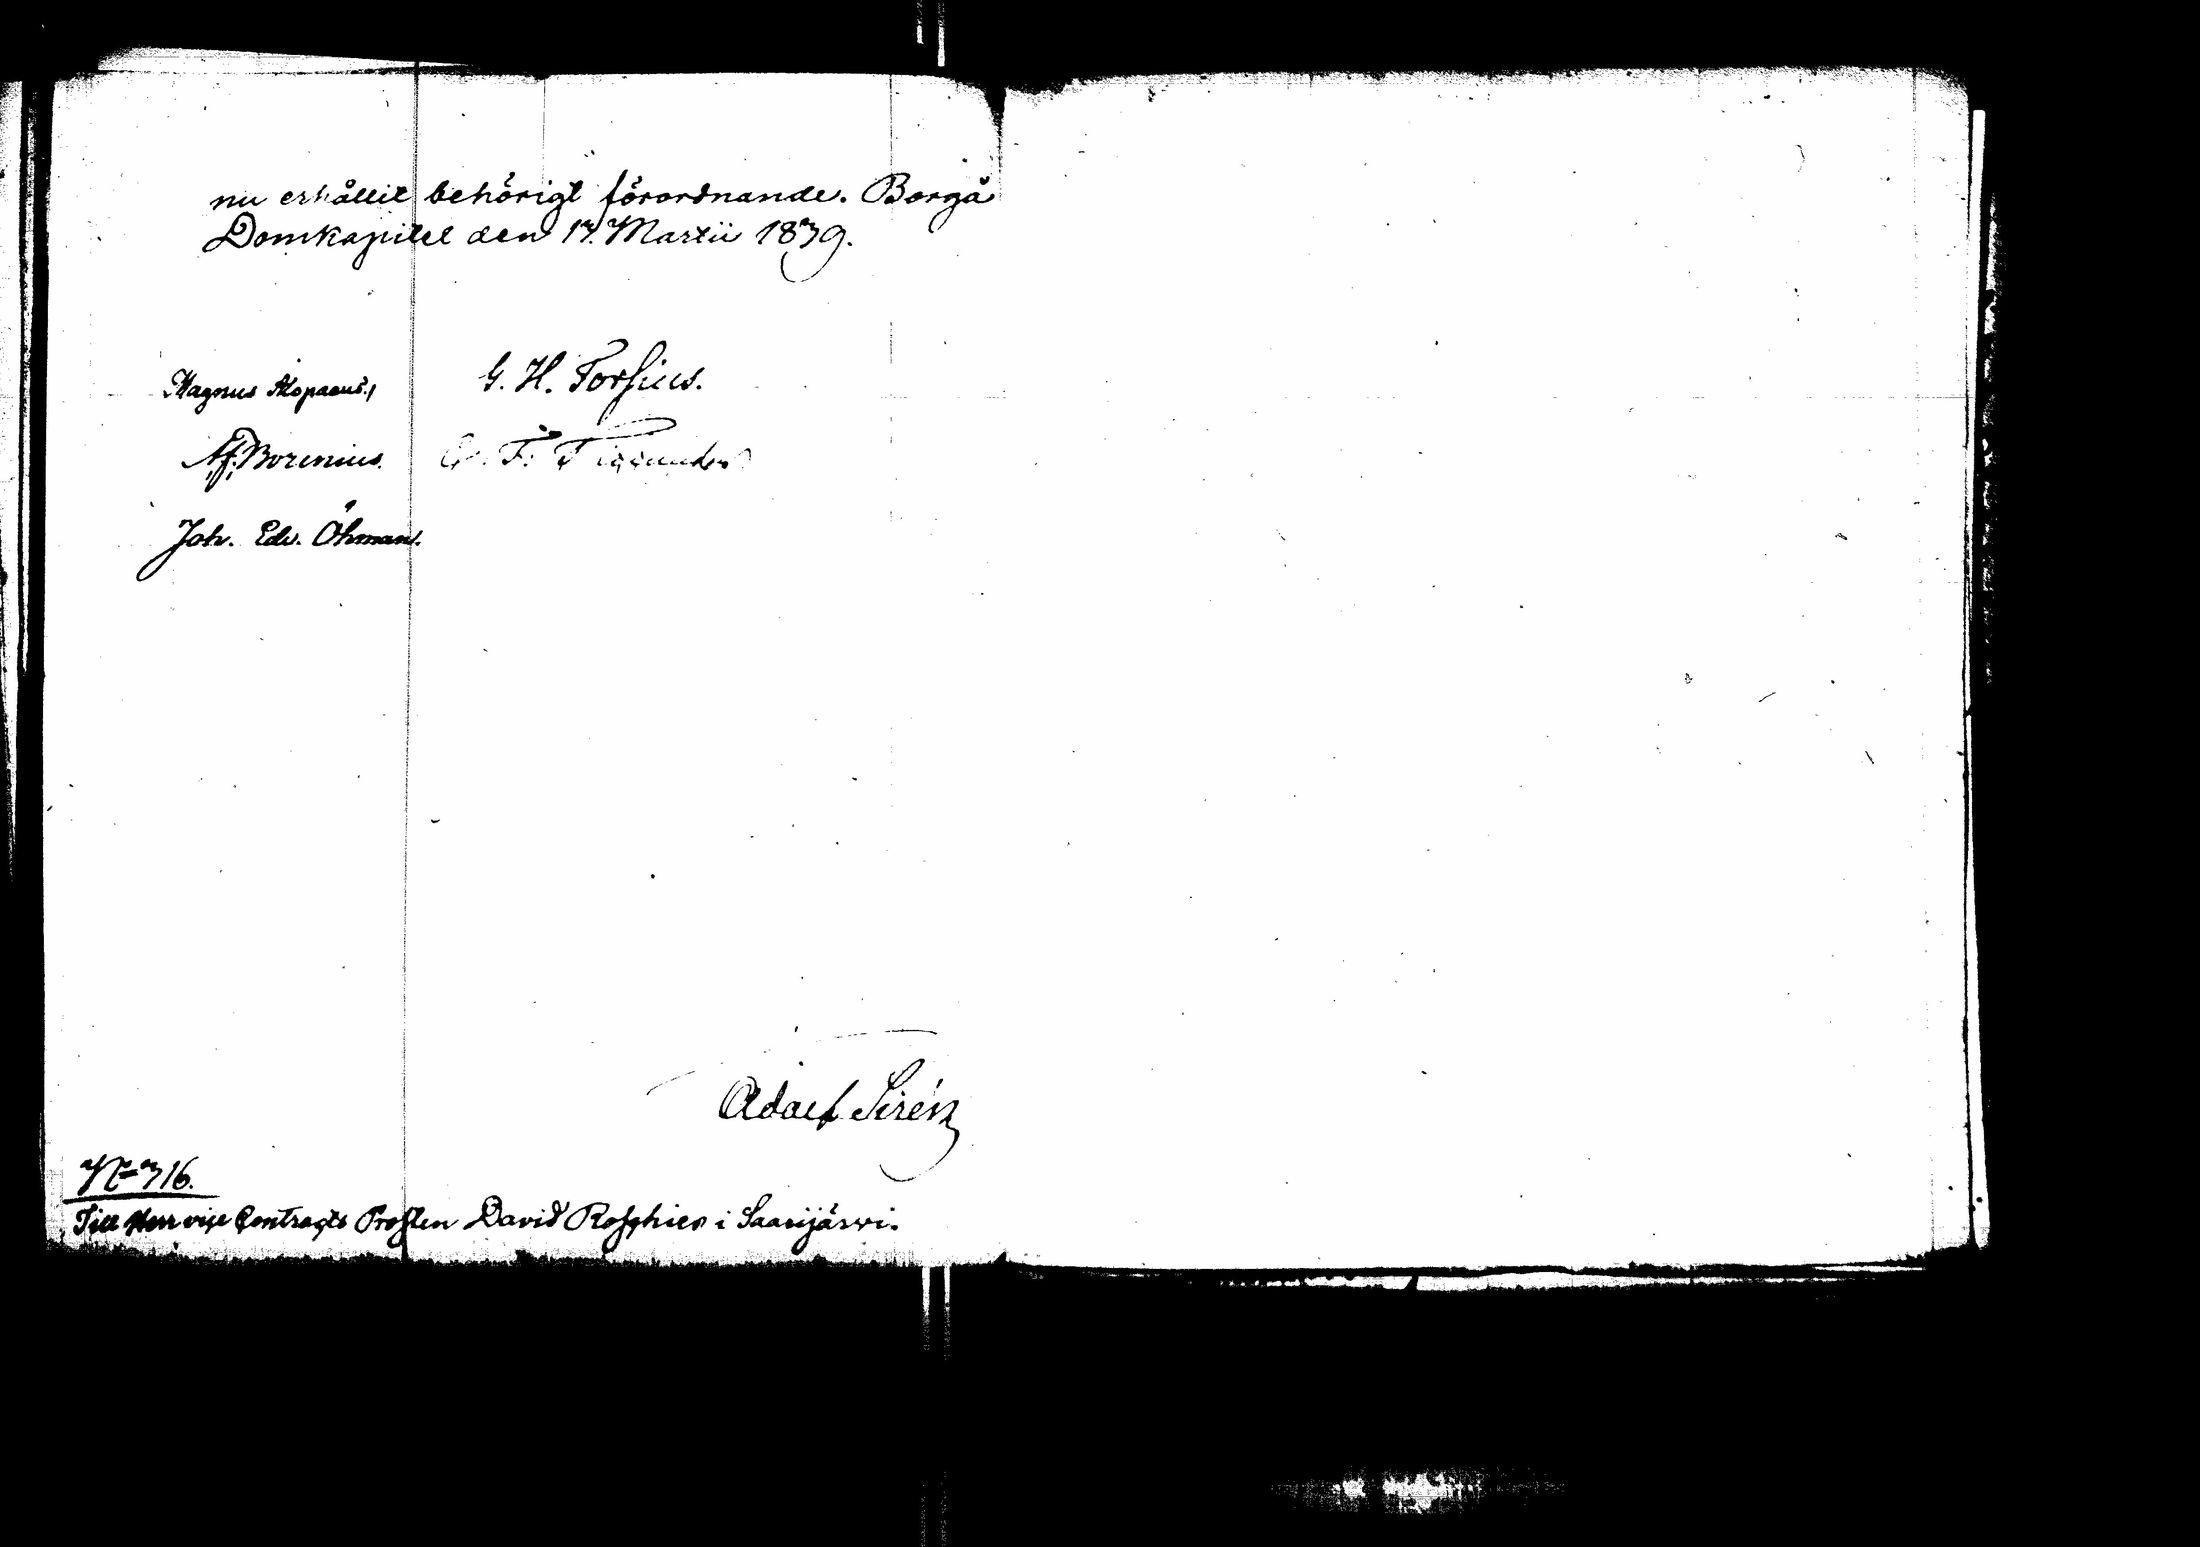 nu erhållit behörigt förordnande. Borgå
Domkapitel den 17. Martii 1839.
Magnus Alopaeus. G. H. Forsius.
Af. Borenius. F.
Joh. Edv. Öhman.
Adolf Sirén
No 316.
Till Herr vice Contracts Prosten David Roschier i Saarijärwi.